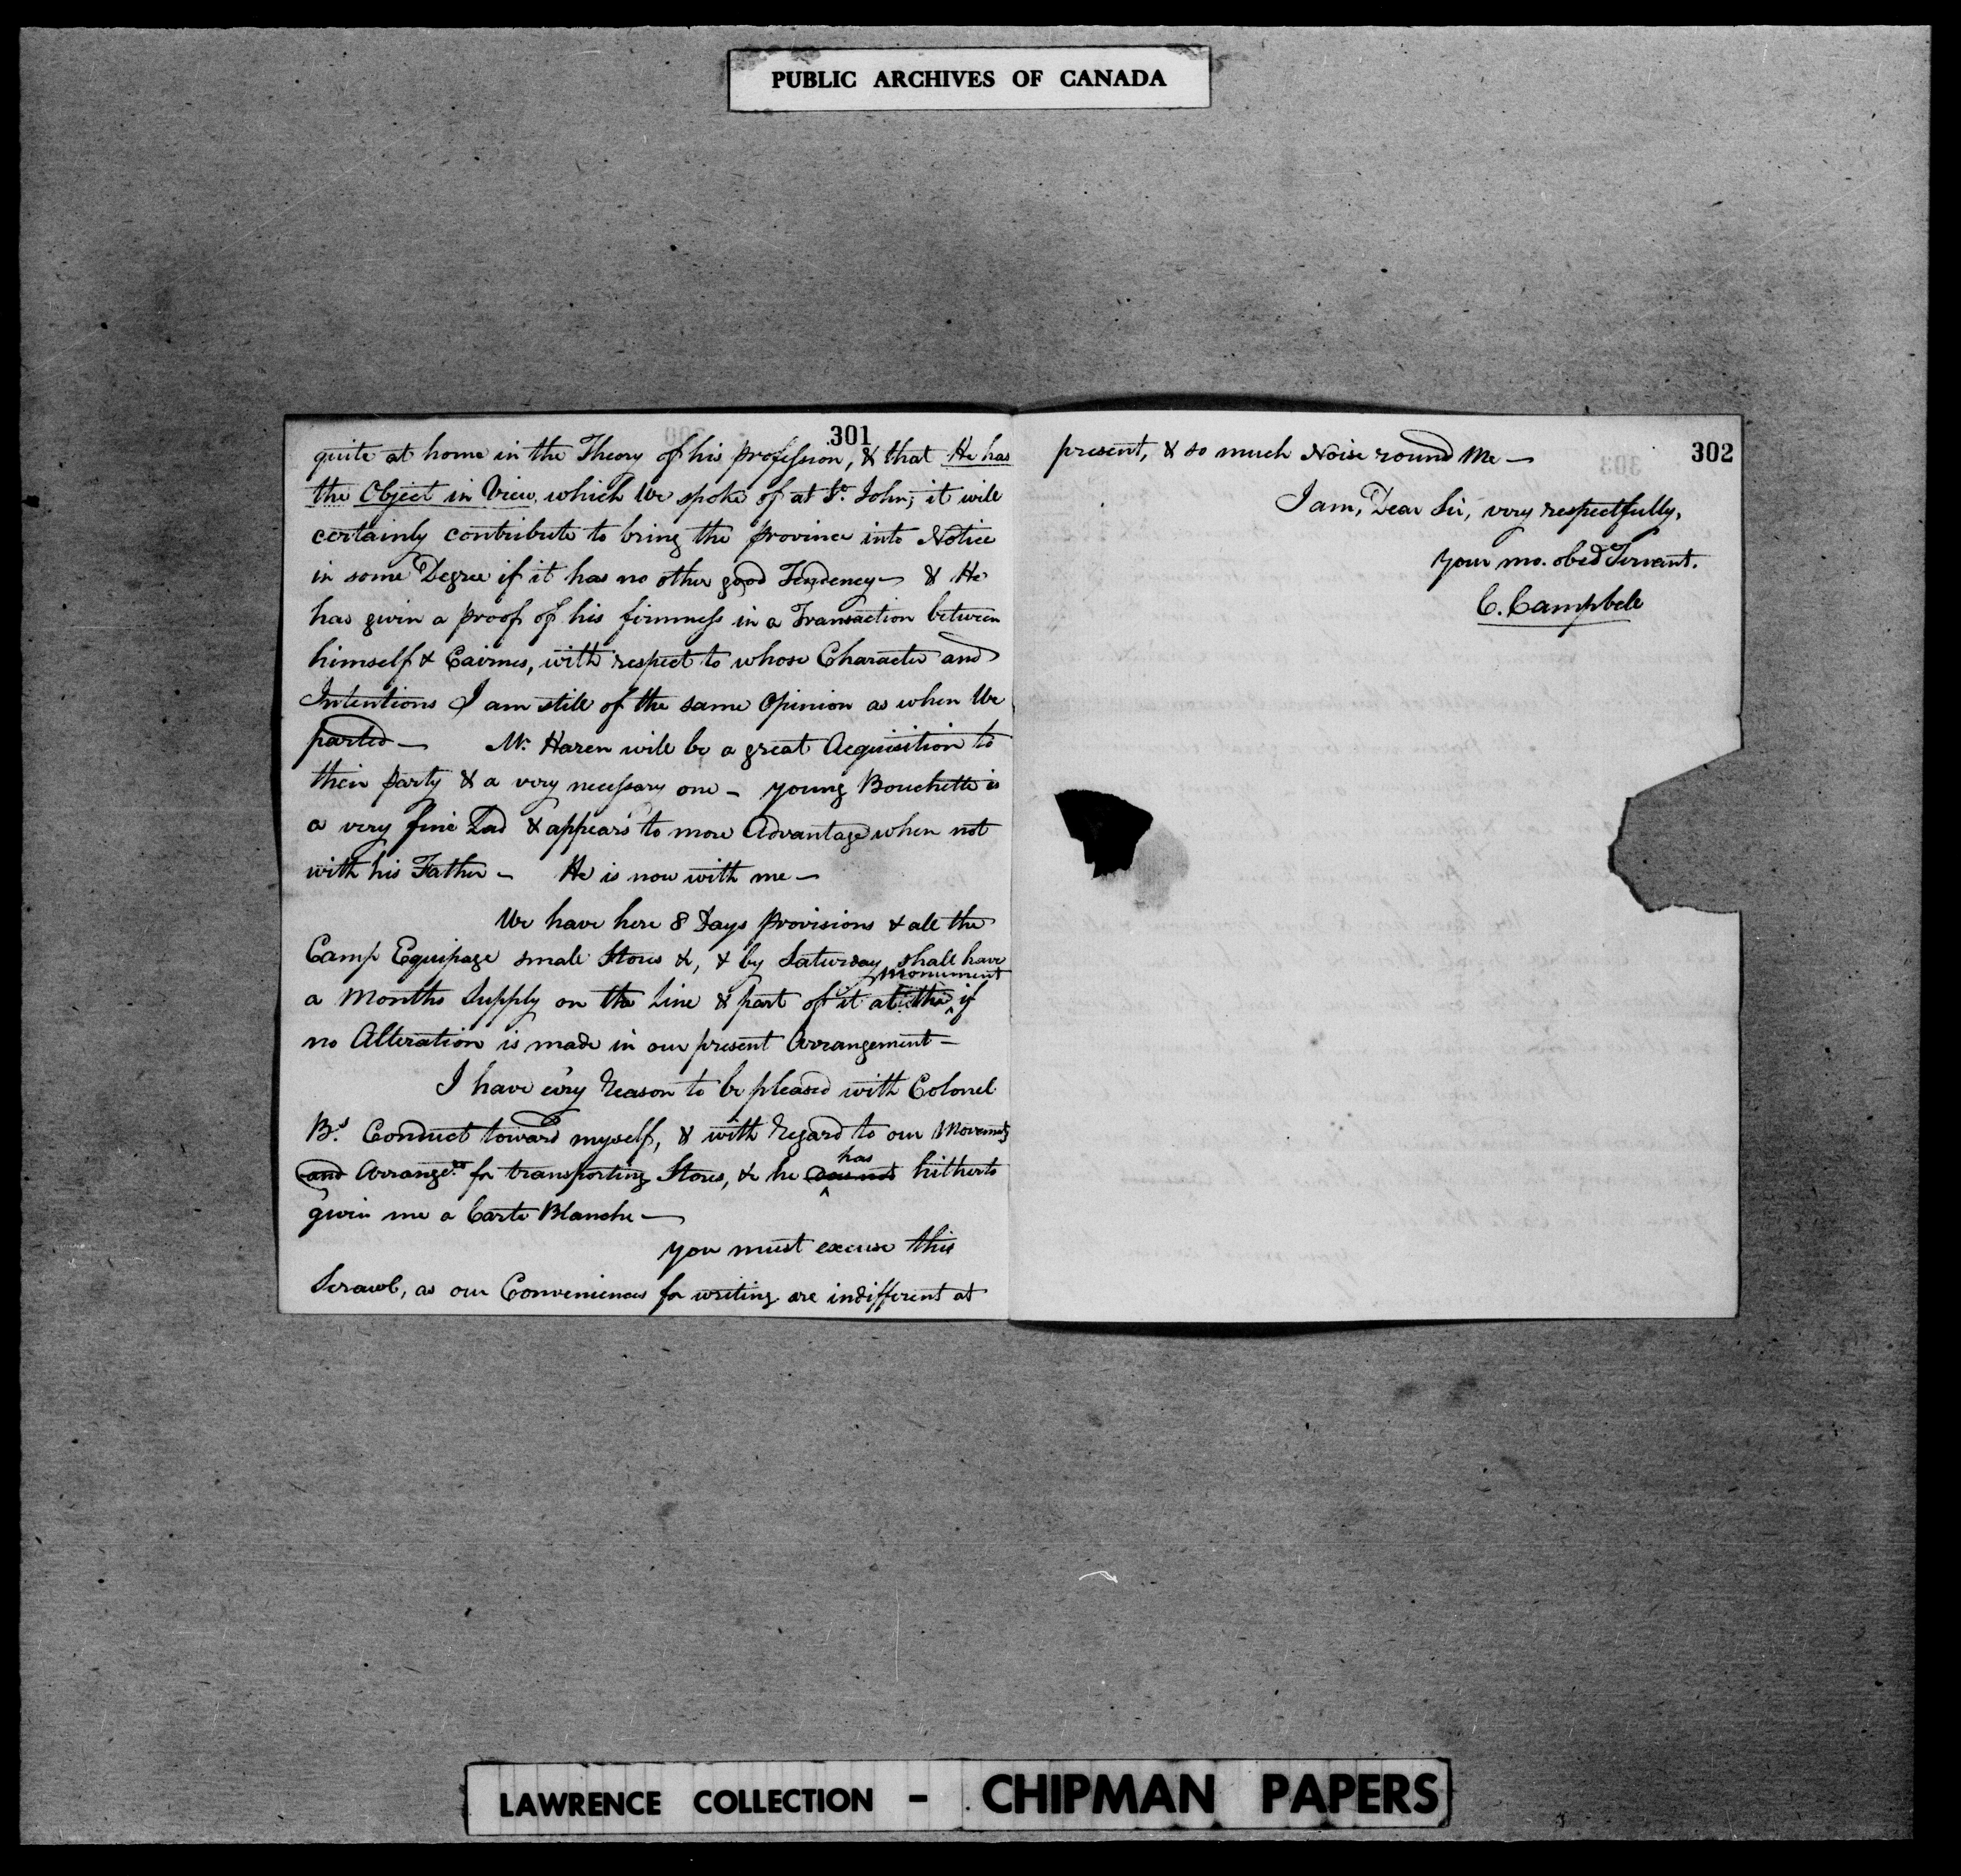 PUBLIC ARCHIVES OF CANADA
301
quite at home in the Theory of his profession, & that He has
the Object in View, which We spoke of at St. John; it will
certainly contribute to bring the province into Notice
in some Degree if it has no other good Tendency — & He
has given a proof of his firmness in a Transaction between
himself & Cairnes, with respect to whose Character and
Intentions I am still of the same Opinion as when We
parted — Mr. Hazen will be a great Acquisition to
their party & a very necessary one — young Bouchette is
a very fine Lad & appears to more Advantage when not
with his Father — He is now with me —
We have here 8 Days provisions & all the
Camp Equipage small Stores &, & by Saturday shall have
a Months Supply on the Line & part of it at the monument if
no Alteration is made in our present Arrangement —
I have ev'ry Reason to be pleased with Colonel
B's Conduct toward myself, & with Regard to our Movements
and Arrangets for transporting Stores, & he has hitherto
given me a Carte Blanche —
you must excuse this
Scrawl, as our Conveniences for writing are indifferent at
302
present, & so much Noise round Me —
I am, Dear Sir, very respectfully,
Your mo. obed Servant.
C. Campbell
LAWRENCE COLLECTION - CHIPMAN PAPERS